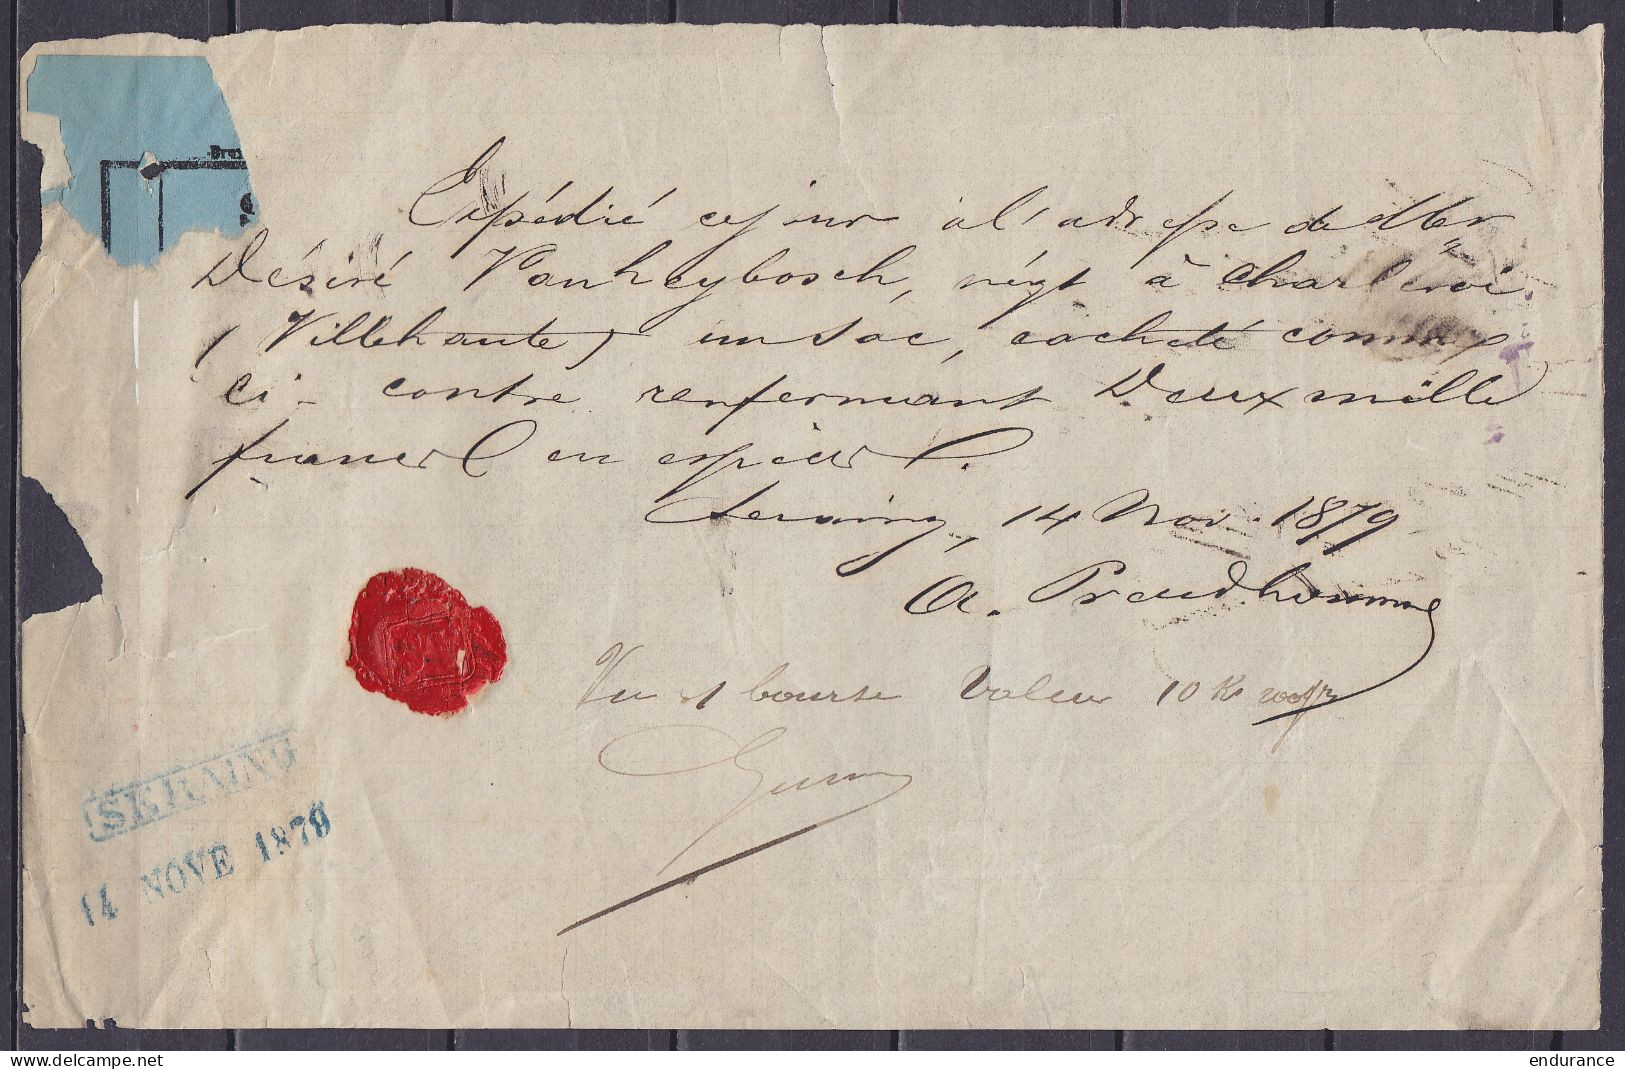 Expédié ce jour à l'adresse de Mr
Désiré Vanheybosch, négt à Charleroi
(Ville haute) un sac, cacheté comme
ci-contre renfermant Deux mille
francs en espèces.
Seraing, 14 Nov. 1879
A. Preudhomme
Vu 1 bourse Valeur 10 K 2000 fr
SERAING
14 NOVE 1879
www.delcampe.net
endurance